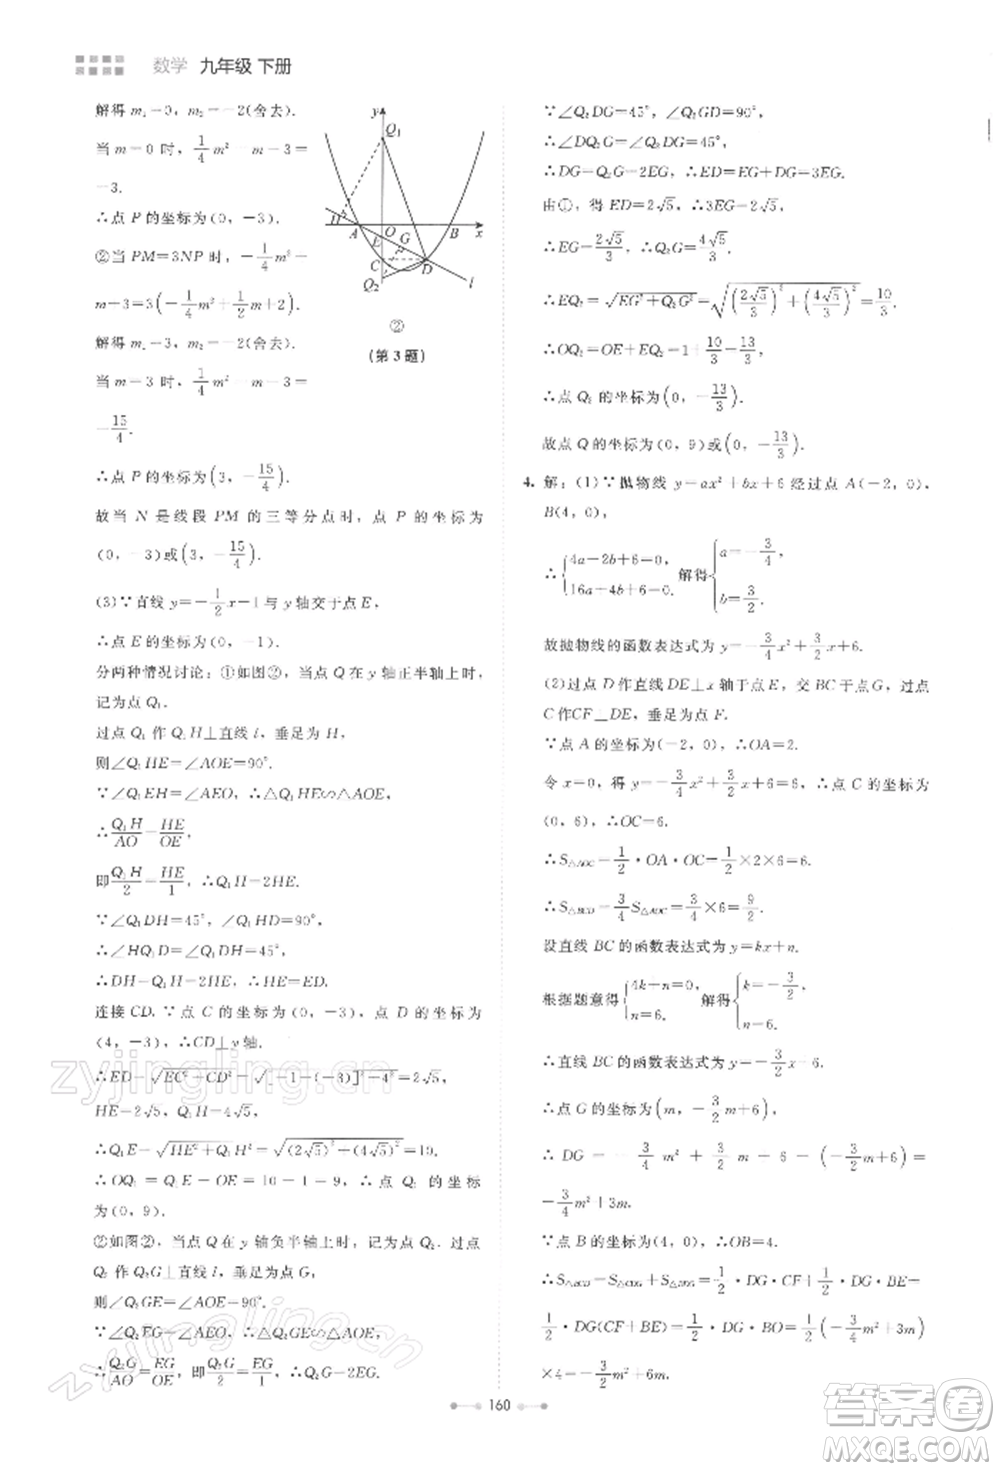 数学 九年级 下册
解得 m₁=0，m₂=-2(舍去).
当 m=0 时，1/4 m²-m-3=
-3.
∴点 P 的坐标为(0，-3).
②当 PM=3NP 时，-1/4 m²+
m-3=3(-1/4 m²+1/2 m+2)
解得 m₁=3，m₂=-2(舍去).
当 m=3 时，1/4 m²-m-3=
-15/4.
∴点 P 的坐标为(3，-15/4).
故当 N 是线段 PM 的三等分点时，点 P 的坐标为
(0，-3)或(3，-15/4).
(3)∵直线 y=-1/2 x-1 与 y 轴交于点 E，
∴点 E 的坐标为(0，-1).
分两种情况讨论：①如图②，当点 Q 在 y 轴正半轴上时，
记为点 Q₁.
过点 Q₁ 作 Q₁H⊥直线 l，垂足为 H，
则∠Q₁HE=∠AOE=90°.
∵∠Q₁EH=∠AEO，∴△Q₁HE∽△AOE，
∴Q₁H/AO=HE/OE，
即Q₁H/2=HE/1，∴Q₁H=2HE.
∵∠Q₁DH=45°，∠Q₁HD=90°，
∴∠HQ₁D=∠Q₁DH=45°，
∴DH=Q₁H=2HE，∴HE=ED.
连接 CD. ∵点 C 的坐标为(0，-3)，点 D 的坐标为
(4，-3)，∴CD⊥y 轴.
HE=2√5，Q₁H=4√5，
∴Q₁E=√(HE²+Q₁H²)=√((2√5)²+(4√5)²)=10.
∴OQ₁=Q₁E-OE=10-1=9，∴点 Q₁ 的坐标
为(0，9).
②如图②，当点 Q 在 y 轴负半轴上时，记为点 Q₂. 过点
Q₂ 作 Q₂G⊥直线 l，垂足为点 G，
则∠Q₂GE=∠AOE=90°.
∵∠Q₂EG=∠AEO，∴△Q₂GE∽△AOE，
∴Q₂G/AO=EG/OE，即Q₂G/2=EG/1，∴Q₂G=2EG.
y
Q₁
H
A
O
B
x
E
G
C
D
Q₂
l
②
(第 3 题)
∵∠Q₂DG=45°，∠Q₂GD=90°，
∴∠DQ₂G=∠Q₂DG=45°，
∴DG=Q₂G=2EG，∴ED=EG+DG=3EG.
由①，得 ED=2√5，∴3EG=2√5，
∴EG=2√5/3，∴Q₂G=4√5/3.
∴EQ₂=√(EG²+Q₂G²)=√((2√5/3)²+(4√5/3)²)=10/3.
∴OQ₂=OE+EQ₂=1+10/3=13/3.
∴点 Q₂ 的坐标为(0，-13/3).
故点 Q 的坐标为(0，9)或(0，-13/3).
4. 解：(1)∵抛物线 y=ax²+bx+6 经过点 A(-2，0)，
B(4，0)，
∴{4a-2b+6=0，16a+4b+6=0，解得{a=-3/4，b=3/2.
故抛物线的函数表达式为 y=-3/4 x²+3/2 x+6.
(2)过点 D 作直线 DE⊥x 轴于点 E，交 BC 于点 G，过点
C 作CF⊥DE，垂足为点 F.
∵点 A 的坐标为(-2，0)，∴OA=2.
令 x=0，得 y=-3/4 x²+3/2 x+6=6，∴点 C 的坐标为
(0，6)，∴OC=6.
∴S△AOC=1/2·OA·OC=1/2×2×6=6.
∴S△BCD=3/4 S△AOC=3/4×6=9/2.
设直线 BC 的函数表达式为 y=kx+n.
根据题意得{4k+n=0，n=6.解得{k=-3/2，n=6.
∴直线 BC 的函数表达式为 y=-3/2 x+6.
∴点 G 的坐标为(m，-3/2 m+6)，
∴DG=-3/4 m²+3/2 m+6-(-3/2 m+6)=
-3/4 m²+3m.
∵点 B 的坐标为(4，0)，∴OB=4.
∴S△BCD=S△CDG+S△BDG=1/2·DG·CF+1/2·DG·BE=
1/2·DG(CF+BE)=1/2·DG·BO=1/2(-3/4 m²+3m)
×4=-3/2 m²+6m，
160
zyjingling.cn
zyjingling.cn
答案圈
MXQE.COM